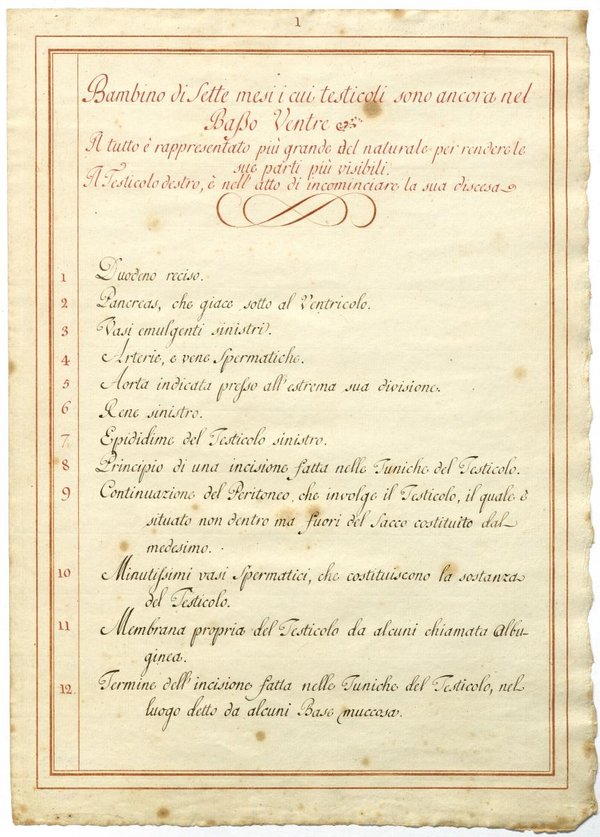 1
Bambino di Sette mesi i cui testicoli sono ancora nel
Baſso Ventre
Il tutto è rappresentato più grande del naturale per rendere le
sue parti più visibili.
Il Testicolo destro, è nell' atto di incominciare la sua discesa
1 Duodeno reciso.
2 Pancreas, che giace sotto al Ventricolo.
3 Vasi emulgenti sinistri.
4 Arterie, e vene Spermatiche.
5 Aorta indicata preſso all' estrema sua divisione.
6 Rene sinistro.
7. Epididime del Testicolo sinistro.
8 Principio di una incisione fatta nelle Tuniche del Testicolo.
9 Continuazione del Peritoneo, che involge il Testicolo, il quale è
situato non dentro ma fuori del Sacco costituito dal
medesimo.
10 Minutiſsimi vasi Spermatici, che costituiscono la sostanza
del Testicolo.
11 Membrana propria del Testicolo da alcuni chiamata Albu-
ginea.
12. Termine dell' incisione fatta nelle Tuniche del Testicolo, nel
luogo detto da alcuni Base muccosa.